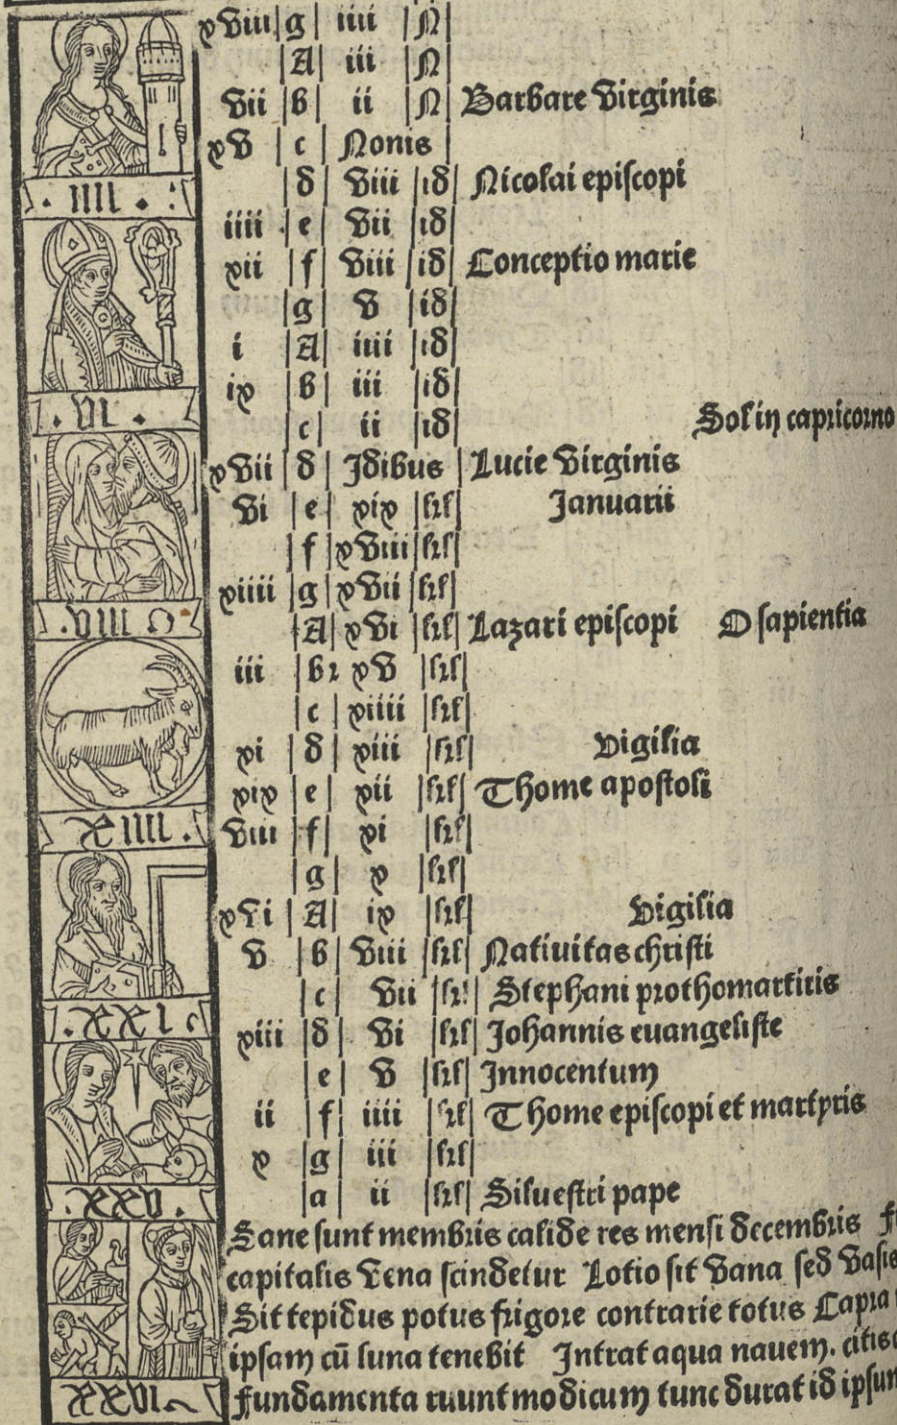 xviii g iiii N
A iii N
vii b ii N Barbare virginis
xv c Nonis
d viii id Nicolai episcopi
iiii e vii id
xii f viii id Conceptio marie
g v id
i A iiii id
ix b iii id
c ii id Sol in capricorno
xvii d Idibus Lucie virginis
vi e xix kl Januarii
f xviii kl
xiiii g xvii kl
A xvi kl Lazari episcopi O sapientia
iii b xv kl
c xiiii kl
xi d xiii kl vigilia
xix e xii kl Thome apostoli
viii f xi kl
g x kl
xvi A ix kl vigilia
v b viii kl Nativitas christi
c vii kl Stephani prothomartiris
xiii d vi kl Johannis evangeliste
e v kl Innocentum
ii f iiii kl Thome episcopi et martyris
x g iii kl
a ii kl Silvestri pape
Sane sunt membris calide res mensi decembris
capitalis vena scindetur Lotio sit vana sed vasis
Sit tepidus potus frigore contrarie totus Capra
ipsam cū luna tenebit Intrat aqua navem.
fundamenta ruunt modicum tunc durat id ipsum
. IIII .
. VI .
. VIII
XIIII .
. XXI
. XXV .
XXVI